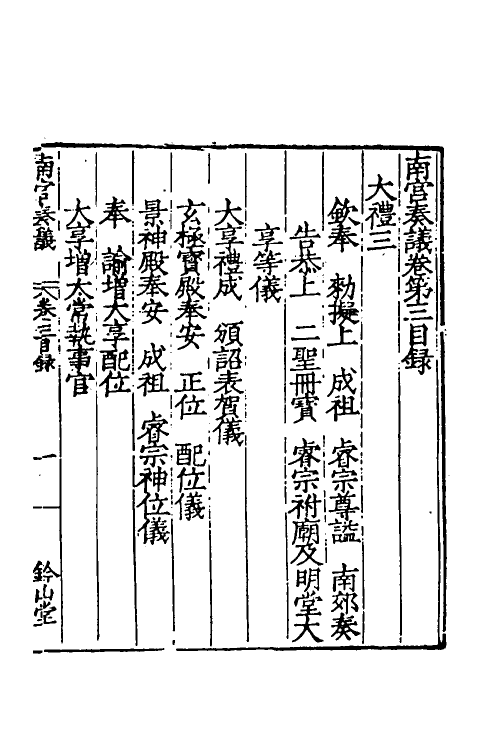 南宮奏議卷第三目録
大禮三
欽奉 勑擬上 成祖 睿宗尊謚 南郊奏
告恭上 二聖冊寶 睿宗祔廟及明堂大
享等儀
大享禮成 頒詔表賀儀
玄極寶殿奉安 正位 配位儀
景神殿奉安 成祖 睿宗神位儀
奉 諭增大享配位
大享增太常執事官
南宮奏議 卷三目録 一 鈐山堂